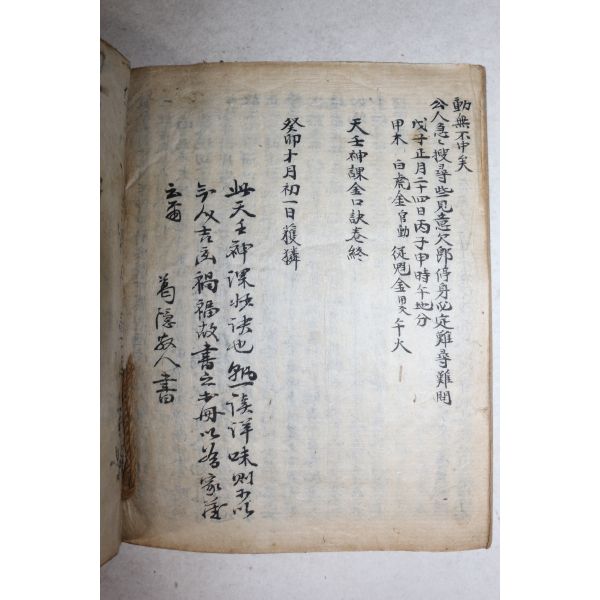 動無不中矣
公人急々搜尋些見意欠郎停身必定難尋難問
戊子正月二十四日丙子申時午地分
甲木 白虎金官動 從魁金 午火
天壬神課金口訣卷終
癸卯十月初一日獲麟
此天壬神課妙訣也熟讀詳味則可以
知人吉凶禍福故書之出冊以爲家藏
云爾
葛隱散人書